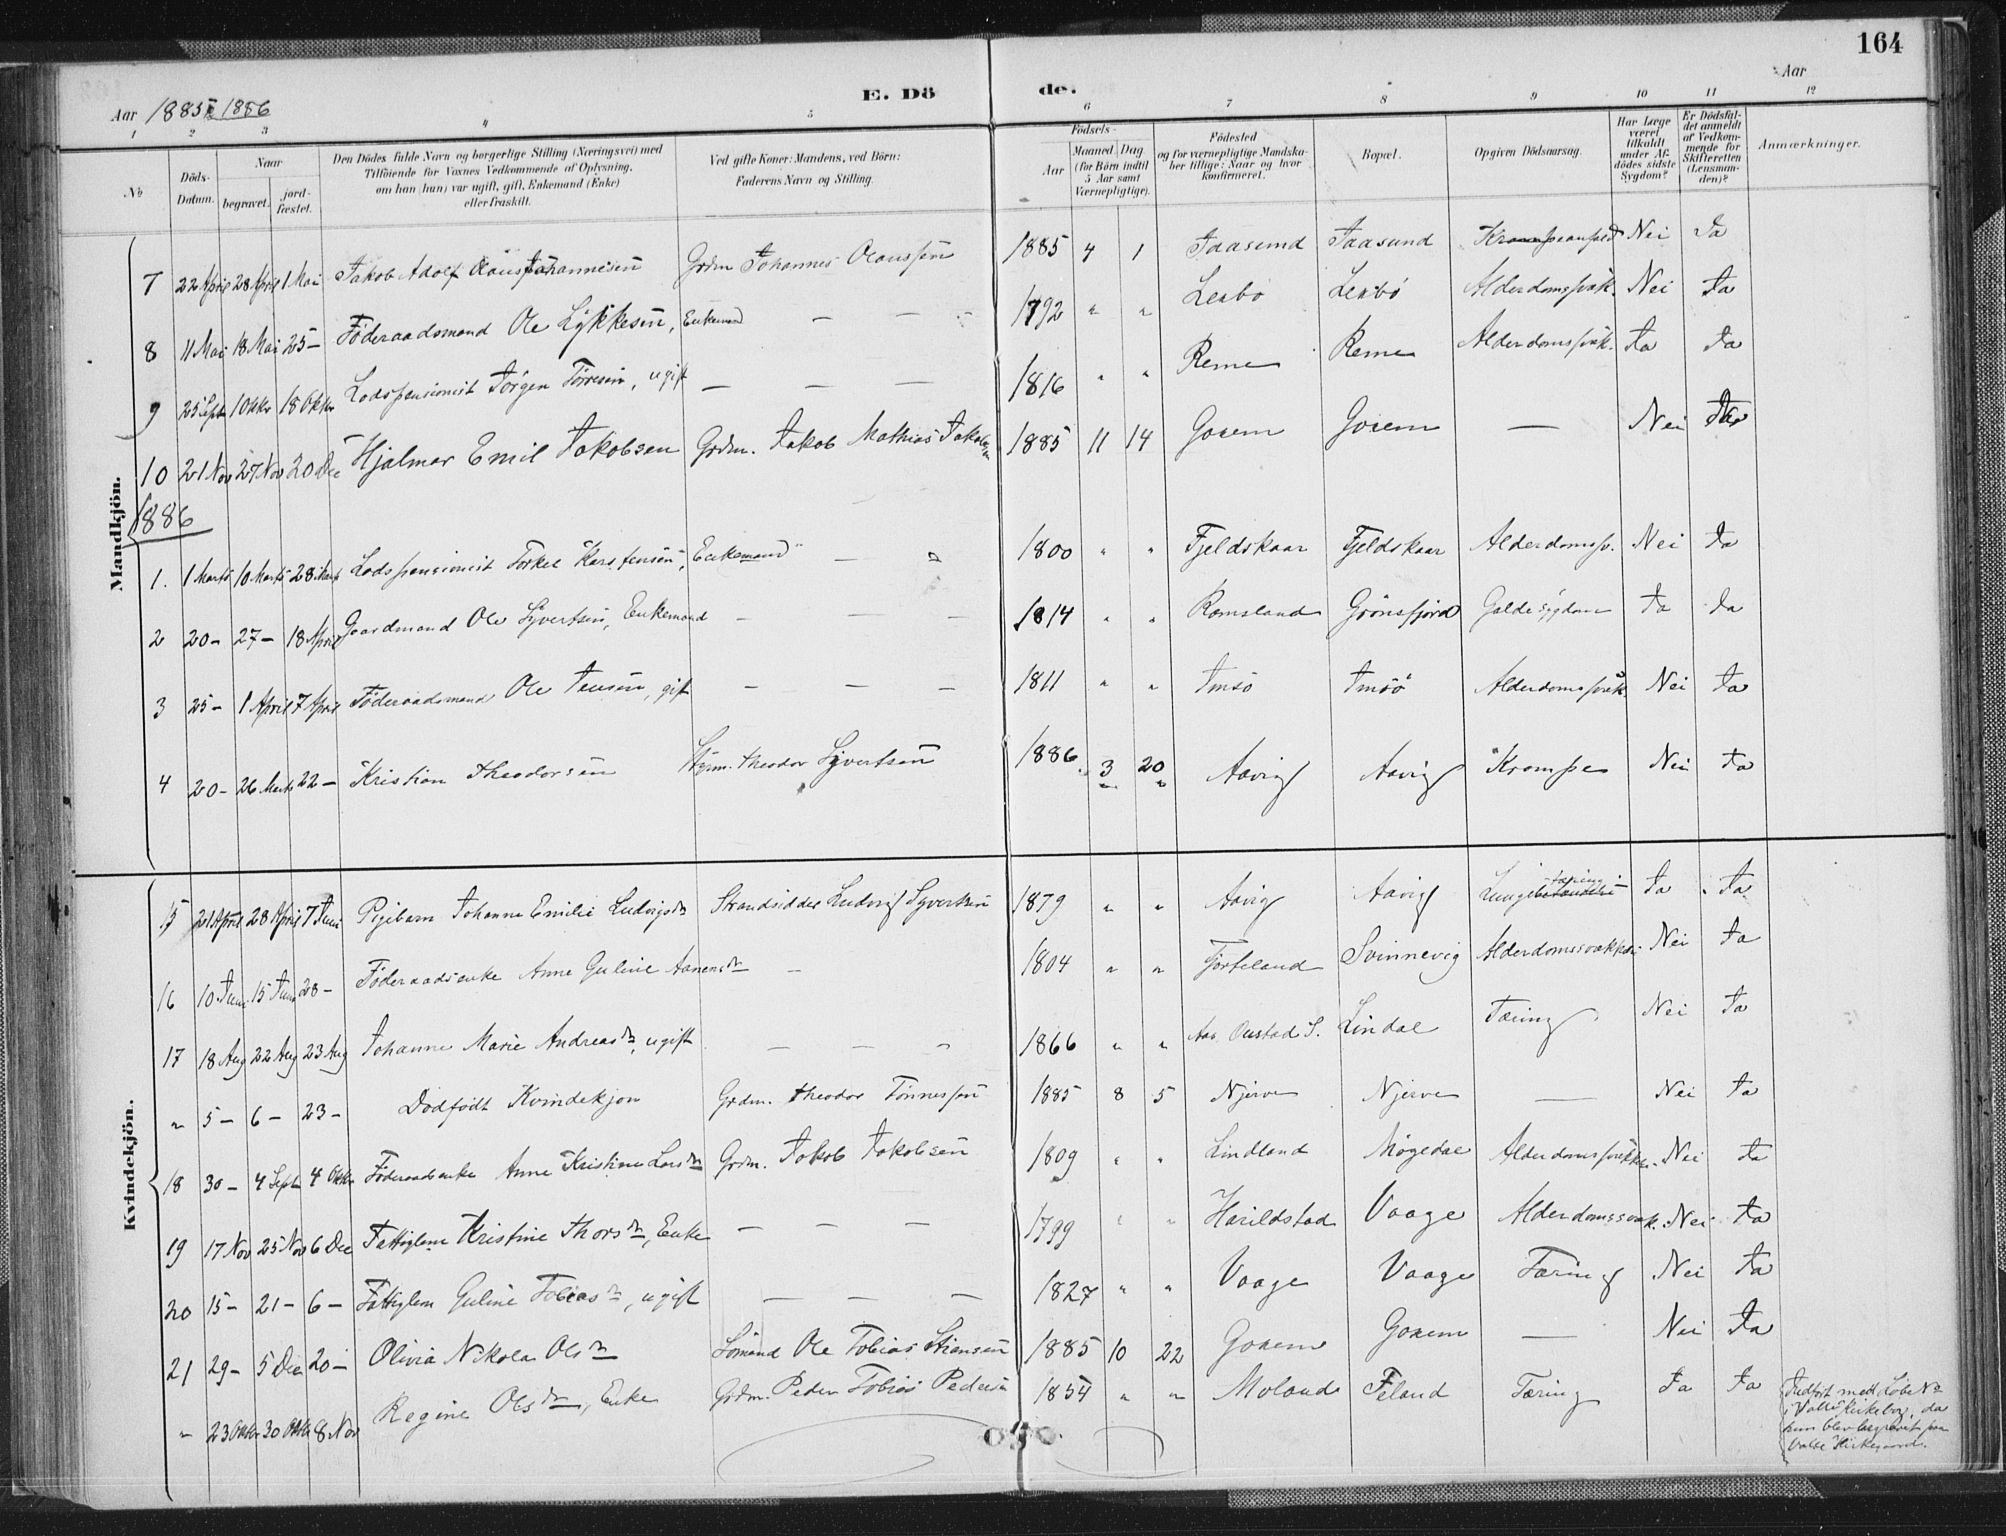 164
Aar 1885 & 1886
E. Dö
de.
Aar
1 2 3 4 5 6 7 8 9 10 11 12
№
Döds-Datum.
Naar
begravet.
jord-fæstet.
Den Dödes fulde Navn og borgerlige Stilling (Næringsvei) med
Tilföiende for Voxnes Vedkommende af Oplysning,
om han (hun) var ugift, gift, Enkemand (Enke)
eller fraskilt.
Ved gifte Koner: Mandens, ved Börn:
Faderens Navn og Stilling.
Födsels-
Aar
Maaned. Dag.
(for Börn indtil
5 Aar samt
Værnepligtige).
Födested
og for værnepligtige Mandska-
ber tillige: Naar og hvor
konfirmeret.
Bopæl.
Opgiven Dödsaarsag.
Har Læge
været
tilkaldt
under Af-
dödes sidste
Sygdom?
Er Dödsfal-
det anmeldt
af Vedkom-
mende for
Skifteretten
(Lensman-
den)?
Anmærkninger.
Mandkjön.
7 22 April 28 April 1 Mai Jakob Adolf Claus Johannesen Grdm Johannes Olaussen 1885 4 1 Taasund Taasund Nei Ja
8 11 Mai 18 Mai 25 – Föderaadsmand Ole Lykkesen, Enkemand — — 1792 " " Lenbo Lenbö Alderdomssvæk. Nei Ja
9 25 Sept 1 Oktbr 18 Oktbr Lodspensionist Jørgen Tørresen, ugift — — — 1816 " " Reme Reme Alderdomssvæk. Ja Ja
10 21 Nov 27 Nov 20 Dec Hjalmar Emil Jakobsen Grdm. Jakob Mathias Jakobsen 1885 11 14 Goxem Goxem — Nei Ja
1886
1. 1 Marts 10 Marts 28 Marts Lodspensionist Torkel Karstensen, Enkemand — 1800 " " Fjeldskaar Fjeldskaar Alderdomssv. Nei Ja
2 20 – 27 – 18 April Gaardmand Ole Syvertsen, Enkemand — — — 1814 " " Ramsland Grönsfjord Galdesygdom Ja Ja
3 25 – 1 April 7 April Föderaadsmand Ole Jensen, gift — — — 1811 " " Imsö Imsö Alderdomssvæk. Nei Ja
4 20 – 26 Marts 22 – Kristian Theodorsen Theodor Syvertsen 1886 3 20 Aavig Aavig Krampe Nei Ja
Kvindekjön.
15 21 April 28 April 7 Juni Pigebarn Johanne Emilie Ludvigsdtr Strandsidder Ludvig Syvertsen 1879 " " Aavig Aavig Lungetæring Ja Ja
16 10 Juni 15 Juni 28 – Föderaadsenke Anne Guline Aanensdtr — 1804 " " Tjorteland Svinnevig Alderdomssvækkelse Nei Ja
17 18 Aug 22 Aug 23 Aug Johanne Marie Andreasdtr, ugift — — " 1866 " " Oustad S. Lindal Tæring Nei Ja
" 5 – 6 – 23 – Dødfødt Kvindekjøn Grdm. Theodor Tønnessen 1885 8 5 Njerve Njerve — Nei Ja
18 30 – 4 Sept 4 Oktbr Föderaadsenke Anne Kristine Larsdtr Grdm. Jakob Jakobsen 1809 " " Lindland Møgedal Alderdomssvækk. Nei Ja
19 17 Nov 25 Nov 6 Dec Fattiglem Kristine Thorsdtr, Enke — — — 1799 " " Harildstad Vaage Alderdomssvæk. Nei Ja
20 15 – 21 – 6 – Fattiglem Guline Tobiasdtr, ugift — — — 1827 " " Vaage Vaage Tæring Nei Ja
21 29 – 5 Dec 20 – Olivia Nikola Olsdtr Sömand Ole Tobias Stiansen 1885 10 22 Goxem Goxem — Nei Ja
" 23 Oktbr 30 Oktbr 8 Nov Regine Olsdtr, Enke Grdm. Peder Tobias Pedersen 1854 " " Moland Feland Tæring Ja Ja
Indført med Løbe No
i Valle Kirkebog, da
hun blev begravet paa
Valle Kirkegaard.